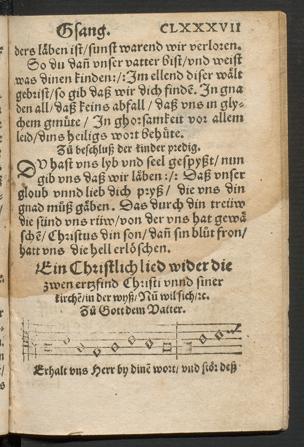 Gsang. CLXXXVII
ders läben ist/sunst warend wir verloren.
So du dañ vnser vatter bist/vnd weist
was dinen kinden:/: Im ellend diser wält
gebrist/so gib daß wir dich findẽ. In gna
den all/daß keins abfall/daß vns in gly-
chem gmüte/In ghorsamkeit vor allem
leid/dins heiligs wort behüte.
Zů beschluß der kinder predig.
DV hast vns lyb vnd seel gespyßt/nun
gib vns daß wir läben:/: Daß vnser
gloub vnnd lieb dich pryß/die vns din
gnad můß gäben. Das durch din treüw
die sünd vns rüw/von der vns hat gewä
schẽ/Christus din son/dañ sin blůt fron/
hatt vns die hell erlöschen.
Ein Christlich lied wider die
zwen ertzfind Christi vnnd siner
kirchẽ/in der wyß/Nũ wil sich/ꝛc.
Zů Gott dem Vatter.
Erhalt vns Herr by dinẽ wort/vnd stör deß